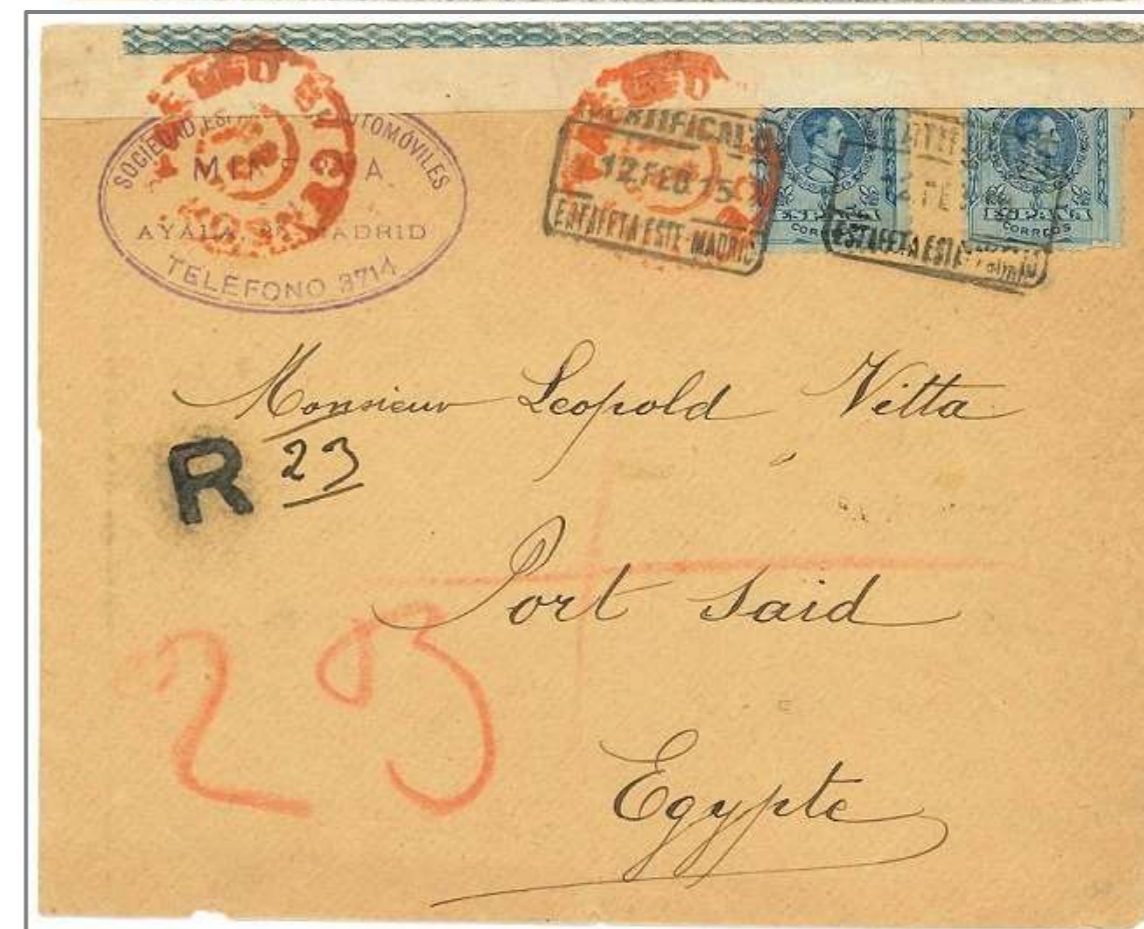 SOCIEDAD AUTOMÓVILES
AYALA MADRID
TELÉFONO 3714
CERTIFICADO
12.FEB.15
ESTAFETA ESTE-MADRID
ESTAFETA ESTE
CORREOS
CORREOS
Monsieur Leopold Vitta
R 23
Port Said
23
Egypte